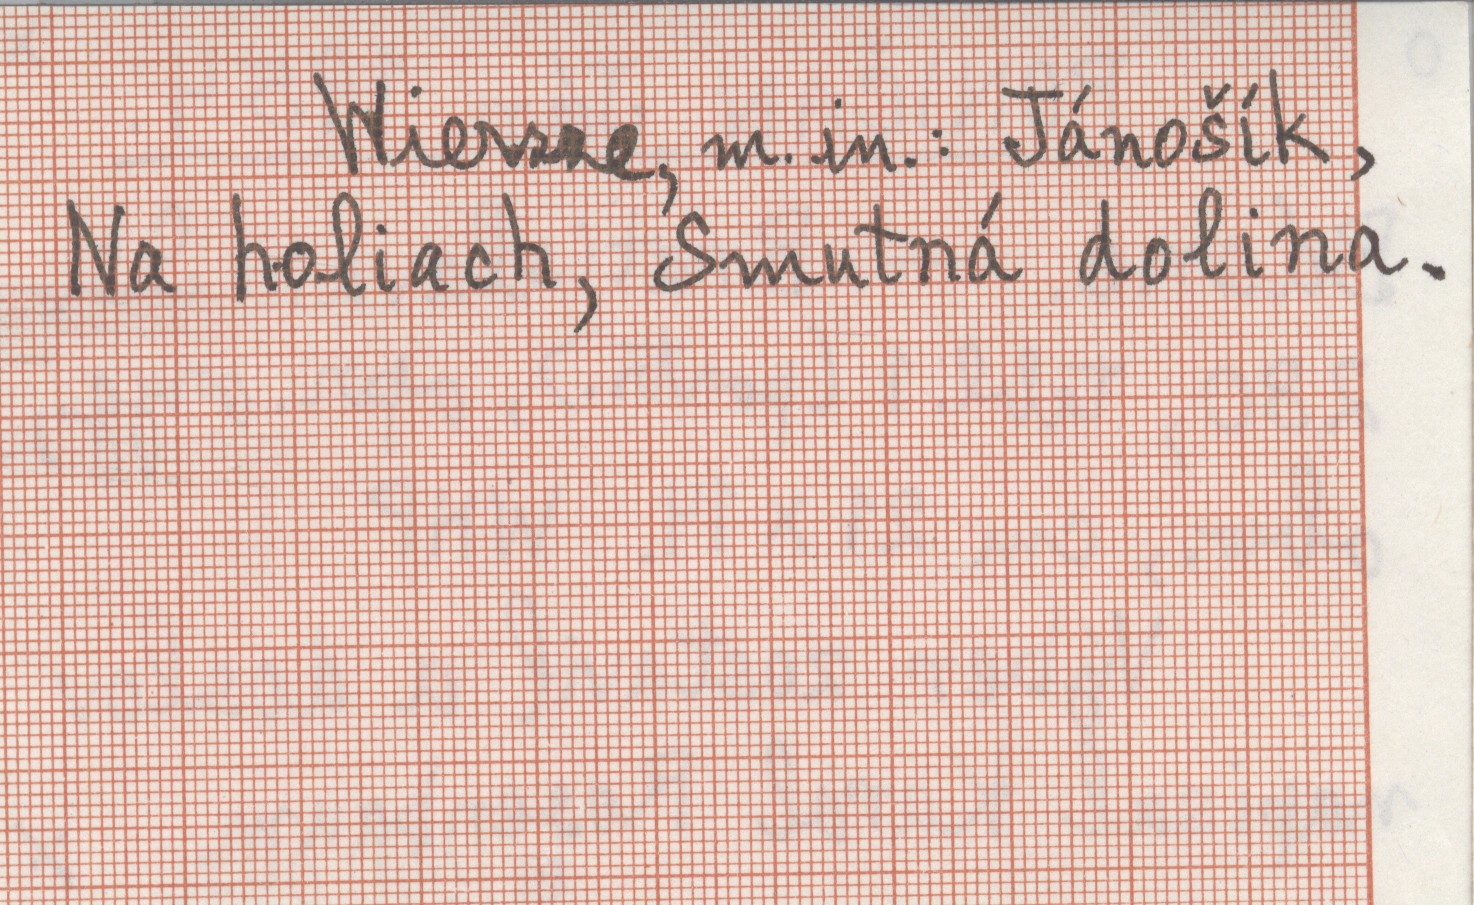 Wiersze, m.in.: Jánošík,
Na holiach, Smutná dolina.